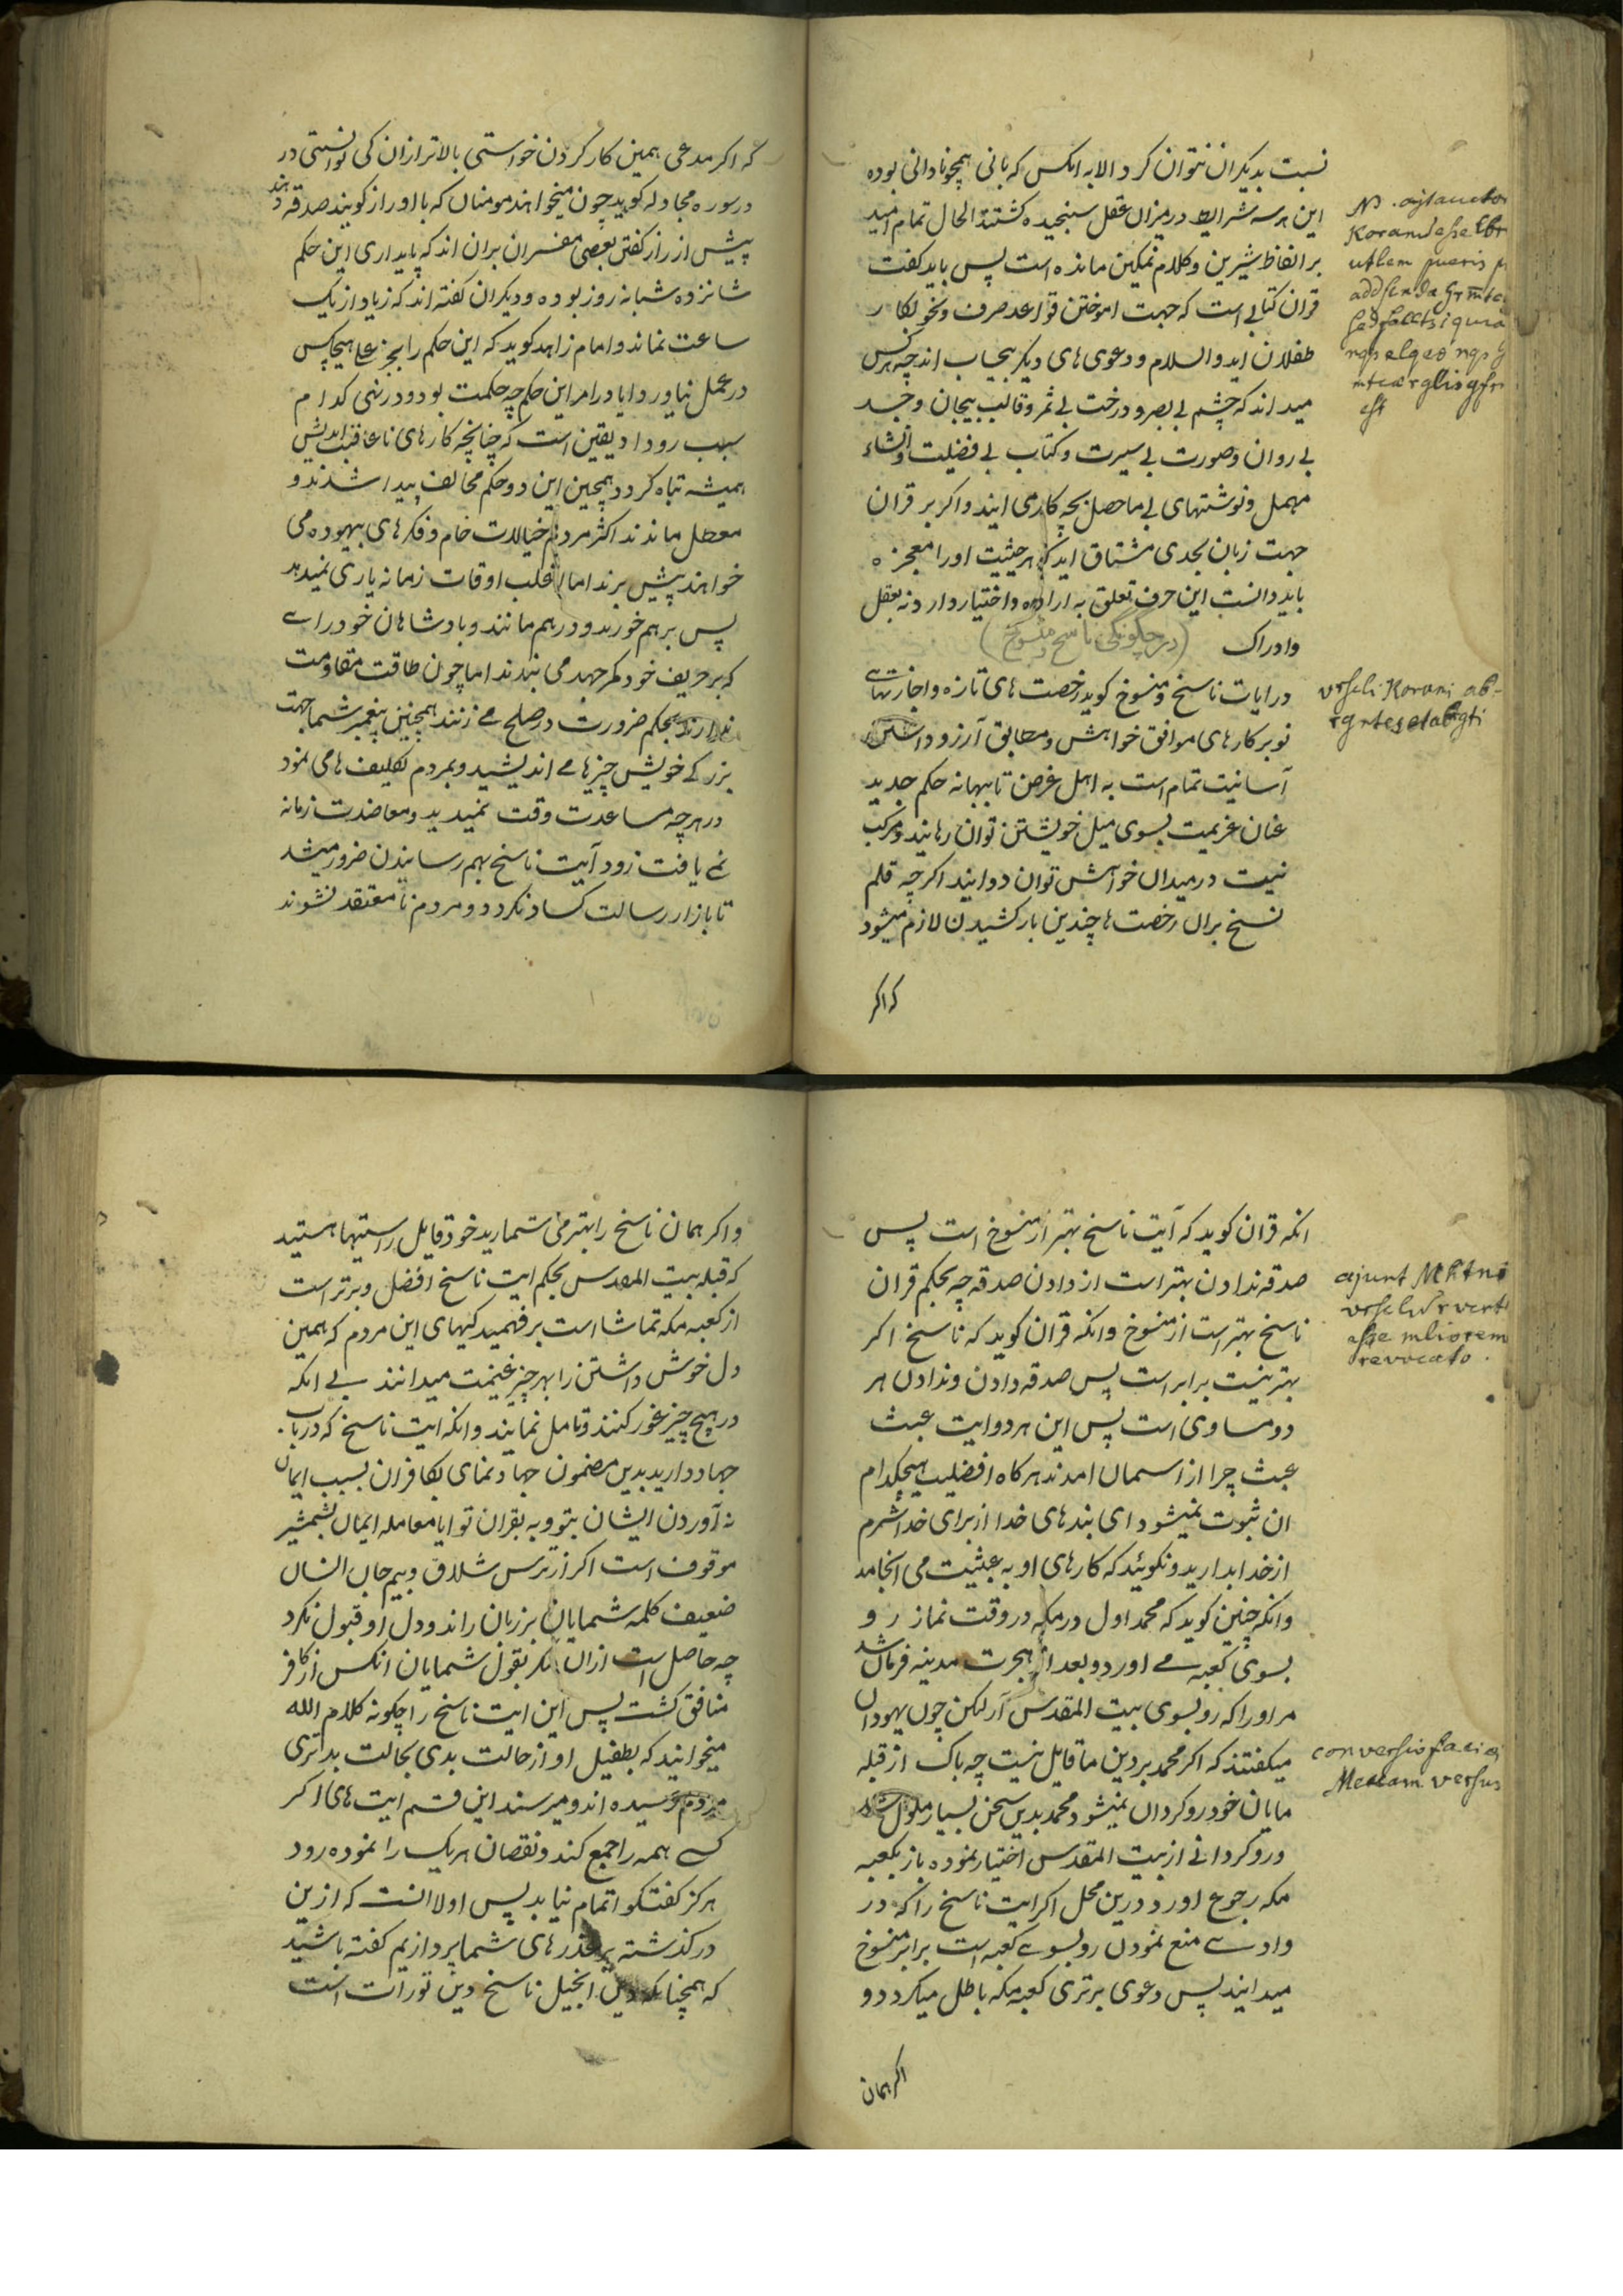 نسبت بدیکران نتوان کرد الا به انکس که بانی همچو نادانی بوده
این هر سه شرایط در میزان عقل سنجیده کشتند الحال تمام امید
بر الفاظ شیرین و کلام نمکین مانده است پس باید کفت
قران کتابی است که جهت اموختن قواعد صرف و نحو بکار
طفلان اید والسلام و دعوی های دیکر بیجاب اند چه هر کس
میداند که چشم بی بصر و درخت بی ثمر و قالب بیجان و جسد
بی روان و صورت بی سیرت و کتاب بی فضیلت و انشاء
مهمل و نوشتهای بی ماحصل بچه کار می ایند و اکر بر قران
جهت زبان بحدی مشتاق اید که هر حیثیت اورا معجزه
باید دانست این حرف تعلق به اراده و اختیار دارد نه بعقل
و ادراک (در چکونکی ناسخ و منسوخ)
در ایات ناسخ و منسوخ کوید رخصت های تازه و اجازتهای
نو بر کارهای موافق خواهش و مطابق آرزو داشتن
آسانیت تمام است به اهل غرض تا ببهانه حکم جدید
عنان عزیمت بسوی میل خویشتن توان رهانید و مرکب
نیت در میدان خواهش توان دوانید اکرچه قلم
نسخ بران رخصت ها چندین بار کشیدن لازم میشود
که اکر
N. ajt auctor
Koranu esse lbr
utlem pueris
addsenda
est
vrseli Korani ab-
rgntes et abrgti
که اکر مدعی همین کار کردن خواستی بالاتر ازان کی توانستی در
در سوره مجادله کوید چون میخواهند مومنان که با او راز کویند صدقه دهند
پیش از راز کفتن بعضی مفسران بران اند که پایداری این حکم
شانزده شبانه روز بوده و دیکران کفته اند که زیاد از یک
ساعت نماند و امام زاهد کوید که این حکم را بجز علی هیچکس
در عمل نیاورد ایا در امر این حکم چه حکمت بود و در نهی کدام
سبب رو داد یقین است که چنانچه کارهای ناعاقبت اندیش
همیشه تباه کردد همچنین این دو حکم مخالف پیدا شدند و
معطل ماندند اکثر مردم خیالات خام و فکرهای بیهوده می
خواهند پیش برند اما اغلب اوقات زمانه یاری نمیدهد
پس برهم خورند و درهم مانند و بادشاهان خود رای
که بر حریف خود کمر جهد می بندند اما چون طاقت مقاومت
ندارند بحکم ضرورت در صلح می زنند همچنین پیغمبر شما جهت
بزرکی خویش چیزها می اندیشید و بمردم تکلیف ها می نمود
در هر چه مساعدت وقت نمیدید و معاضدت زمانه
نمی یافت زود آیت ناسخ بهم رسانیدن ضرور میشد
تا بازار رسالت کساد نکردد و مردم نامعتقد نشوند
انکه قران کوید که آیت ناسخ بهتر از منسوخ است پس
صدقه ندادن بهتر است از دادن صدقه چه بحکم قران
ناسخ بهتر است از منسوخ و انکه قران کوید که ناسخ اکر
بهتر نیست برابر است پس صدقه دادن و ندادن هر
دو مساوی است پس این هر دو ایت عبث
عبث چرا از اسمان امدند هرکاه افضلیت هیچکدام
ان ثبوت نمیشود ای بندهای خدا از برای خدا شرم
از خدا بدارید و نکوئید که کارهای او به عبثیت می انجامد
و انکه چنین کوید که محمد اول در مکه در وقت نماز رو
بسوی کعبه می اورد و بعد از هجرت مدینه فرمان شد
مر اورا که رو بسوی بیت المقدس آر لکن چون یهودان
میکفتند که اکر محمد بر دین ما قایل نیست چه باک از قبله
مایان خود روکردان نمیشود محمد بدین سخن بسیار ملول شد
و روکردانی از بیت المقدس اختیار نموده باز بکعبه
مکه رجوع اورد درین محل اکر ایت ناسخ را که در
وادی منع نمودن رو بسوی کعبه است برابر منسوخ
میدانید پس دعوی برتری کعبه مکه باطل میکردد و
اکر همان
ajunt Mhtni
vrselu r vert
esse mliorem
revocato.
conversio faciei
Meccam versus
و اکر همان ناسخ را بهتر می شمارید خود قایل راستیها هستید
که قبله بیت المقدس بحکم ایت ناسخ افضل و برتر است
از کعبه مکه تماشا است بر فهمیدکیهای این مردم که همین
دل خوش داشتن را بهر چیز غنیمت میدانند بی انکه
در هیچ چیز غور کنند و تامل نمایند و انکه ایت ناسخ که در باب
جهاد دارید بدین مضمون جهاد نمای بکافران بسبب ایمان
نه آوردن ایشان بتو و به بقران تو ایا معامله ایمان بشمشیر
موقوف است اکر از ترس شلاق و بیم جان انسان
ضعیف کلمه شمایان بر زبان راند و دل او قبول نکرد
چه حاصل است ازان مکر بقول شمایان انکس از کافر
منافق کشت پس این ایت ناسخ را چکونه کلام الله
میخوانید که بطفیل او از حالت بدی بحالت بدتری
مردم رسیده اند و میرسند این قسم ایت های اکر
کسی همه را جمع کند و نقصان هر یک را نموده رود
هرکز کفتکو اتمام نیابد پس اولا انست که ازین
در کذشته بر عذرهای شما پردازیم کفته باشید
که همچنانکه دین انجیل ناسخ دین تورات است